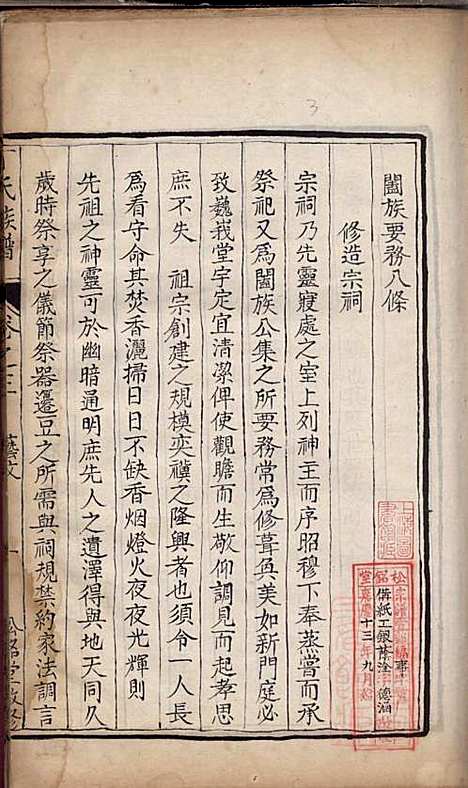 闔族要務八條
修造宗祠
宗祠乃先靈寢處之室上列神主而序昭穆下奉蒸嘗而承
祭祀又爲闔族公集之所要務常爲修葺奐美如新門庭必
致巍峩堂宇定宜清潔俾使觀瞻而生敬仰謁見而起孝思
庶不失 祖宗創建之規模奕禩之隆興者也須令一人長
爲看守命其焚香灑掃日日不缺香烟燈火夜夜光輝則
先祖之神靈可於幽暗通明庶先人之遺澤得與地天同久
歲時祭享之儀節祭器籩豆之所需與祠規禁約家法調言
氏族譜
卷之三
藝文
一
3